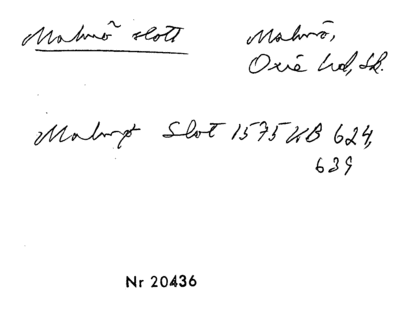 Malmö slott
Malmö,
Oxie hd, Sk.
Malmø Slot 1575 KB 624,
639
Nr 20436